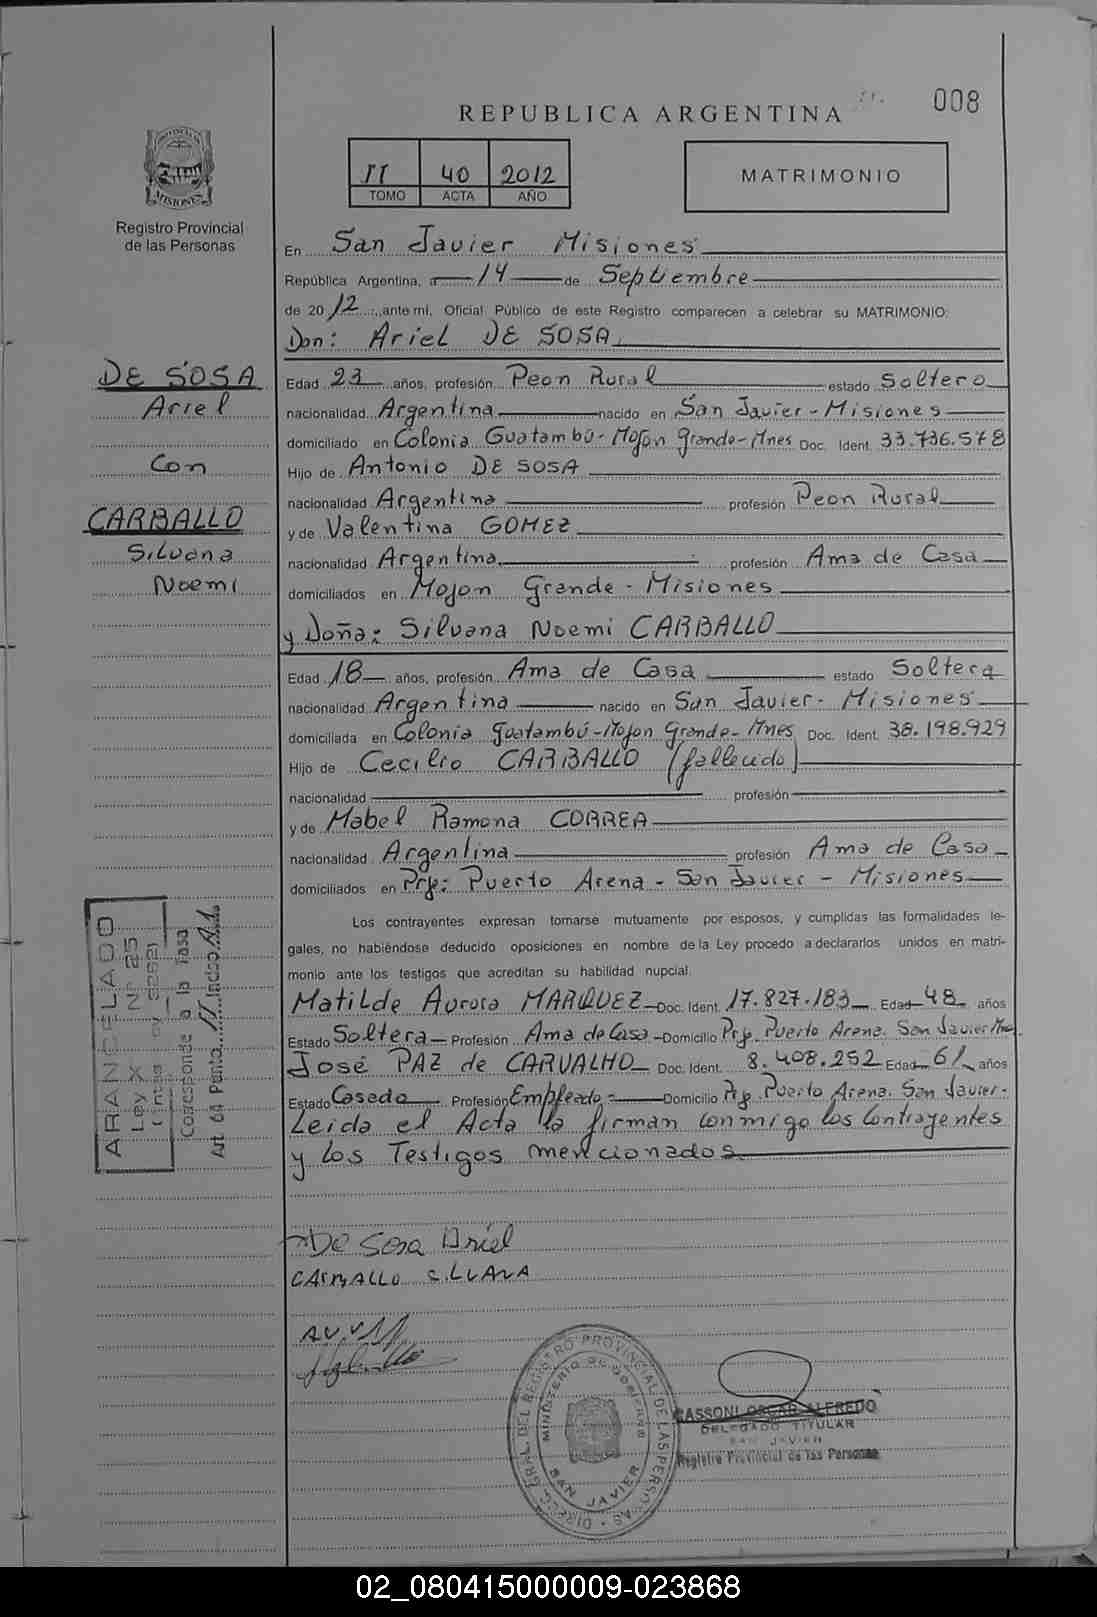 008
REPUBLICA ARGENTINA
II 40 2012
TOMO ACTA AÑO
MATRIMONIO
PROVINCIA DE
MISIONES
Registro Provincial
de las Personas
En San Javier Misiones
República Argentina, a 14 de Septiembre
de 2012, ante mi, Oficial Público de este Registro comparecen a celebrar su MATRIMONIO:
Don: Ariel DE SOSA
DE SOSA
Ariel
Con
CARBALLO
Silvana
Noemi
Edad 23 años, profesión Peon Rural estado Soltero
nacionalidad Argentina nacido en San Javier - Misiones
domiciliado en Colonia Guatambú - Mojon Grande - Mnes Doc. Ident. 33.736.578
Hijo de Antonio DE SOSA
nacionalidad Argentina profesión Peon Rural
y de Valentina GOMEZ
nacionalidad Argentina profesión Ama de Casa
domiciliados en Mojon Grande - Misiones
y Doña: Silvana Noemi CARBALLO
Edad 18 años, profesión Ama de Casa estado Soltera
nacionalidad Argentina nacido en San Javier - Misiones
domiciliada en Colonia Guatambú - Mojon Grande - Mnes Doc. Ident. 38.198.929
Hijo de Cecilio CARBALLO (fallecido)
nacionalidad profesión
y de Mabel Ramona CORREA
nacionalidad Argentina profesión Ama de Casa
domiciliados en Prje: Puerto Arena - San Javier - Misiones
Los contrayentes expresan tomarse mutuamente por esposos, y cumplidas las formalidades le-
gales, no habiéndose deducido oposiciones en nombre de la Ley procedo a declararlos unidos en matri-
monio ante los testigos que acreditan su habilidad nupcial.
Matilde Aurora MARQUEZ Doc. Ident. 17.827.183 Edad 48 años
Estado Soltera Profesión Ama de Casa Domicilio Prje. Puerto Arena. San Javier Mnes.
José PAZ de CARVALHO Doc. Ident. 8.408.252 Edad 61 años
Estado Casado Profesión Empleado Domicilio Prje. Puerto Arena. San Javier.
Leida el Acta la firman conmigo los Contrayentes
y los Testigos mencionados
ARANCELADO
Ley X Nº 25
Corresponde a la Tasa
Art. 64 Punto 11 Inciso A1
De Sosa Ariel
CARBALLO SILVANA
DIRECC. GRAL. DEL REGISTRO PROVINCIAL DE LAS PERSONAS
MINISTERIO DE GOBIERNO
SAN JAVIER
CASSONI OSCAR ALFREDO
DELEGADO TITULAR
SAN JAVIER
Registro Provincial de las Personas
02_080415000009-023868